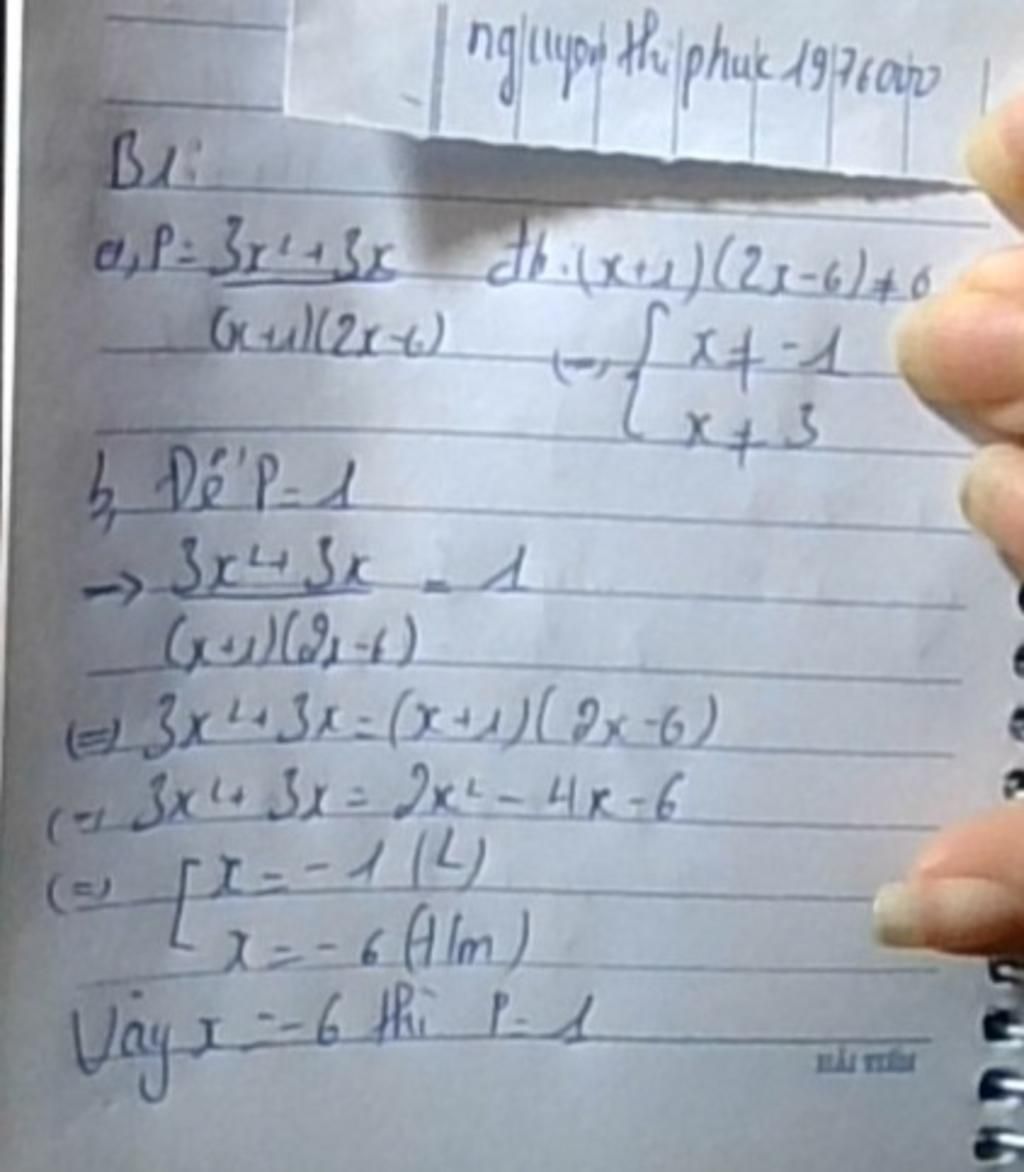 nguyen thi phuc 1976000
B1:
a, P = 3x² + 3x đk: (x+1)(2x-6) ≠ 0
(x+1)(2x-6) <=> { x ≠ -1
x ≠ 3
b, Để P = 1
-> 3x² + 3x = 1
(x+1)(2x-6)
<=> 3x² + 3x = (x+1)(2x-6)
<=> 3x² + 3x = 2x² - 4x - 6
<=> [ x = -1 (L)
x = -6 (t/m)
Vậy x = -6 thì P = 1
HẢI TIẾN